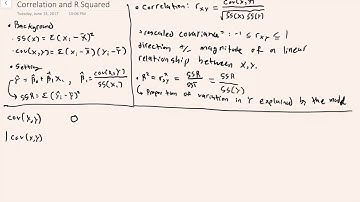 Correlation and R Squared
Tuesday, June 13, 2017 10:00 PM
• Background
• SS(x) = Σ(xᵢ - x̄)²
• cov(x,y) = Σ(xᵢ - x̄)(yᵢ - ȳ)
• Setting
ŷ = β̂₀ + β̂₁xᵢ , β̂₁ = cov(x,y) / SS(x)
↳ SSR = Σ(ŷᵢ - ȳ)²
• Correlation: r_xy = cov(x,y) / √(SS(x) SS(y))
• rescaled covariance: -1 ≤ r_xy ≤ 1
direction & magnitude of a linear
relationship between x, y.
• R² = r²_xy = SSR / SST = SSR / SS(y)
↳ Proportion of variation in Y explained by the model
cov(x,y) 0
| cov(x,y)